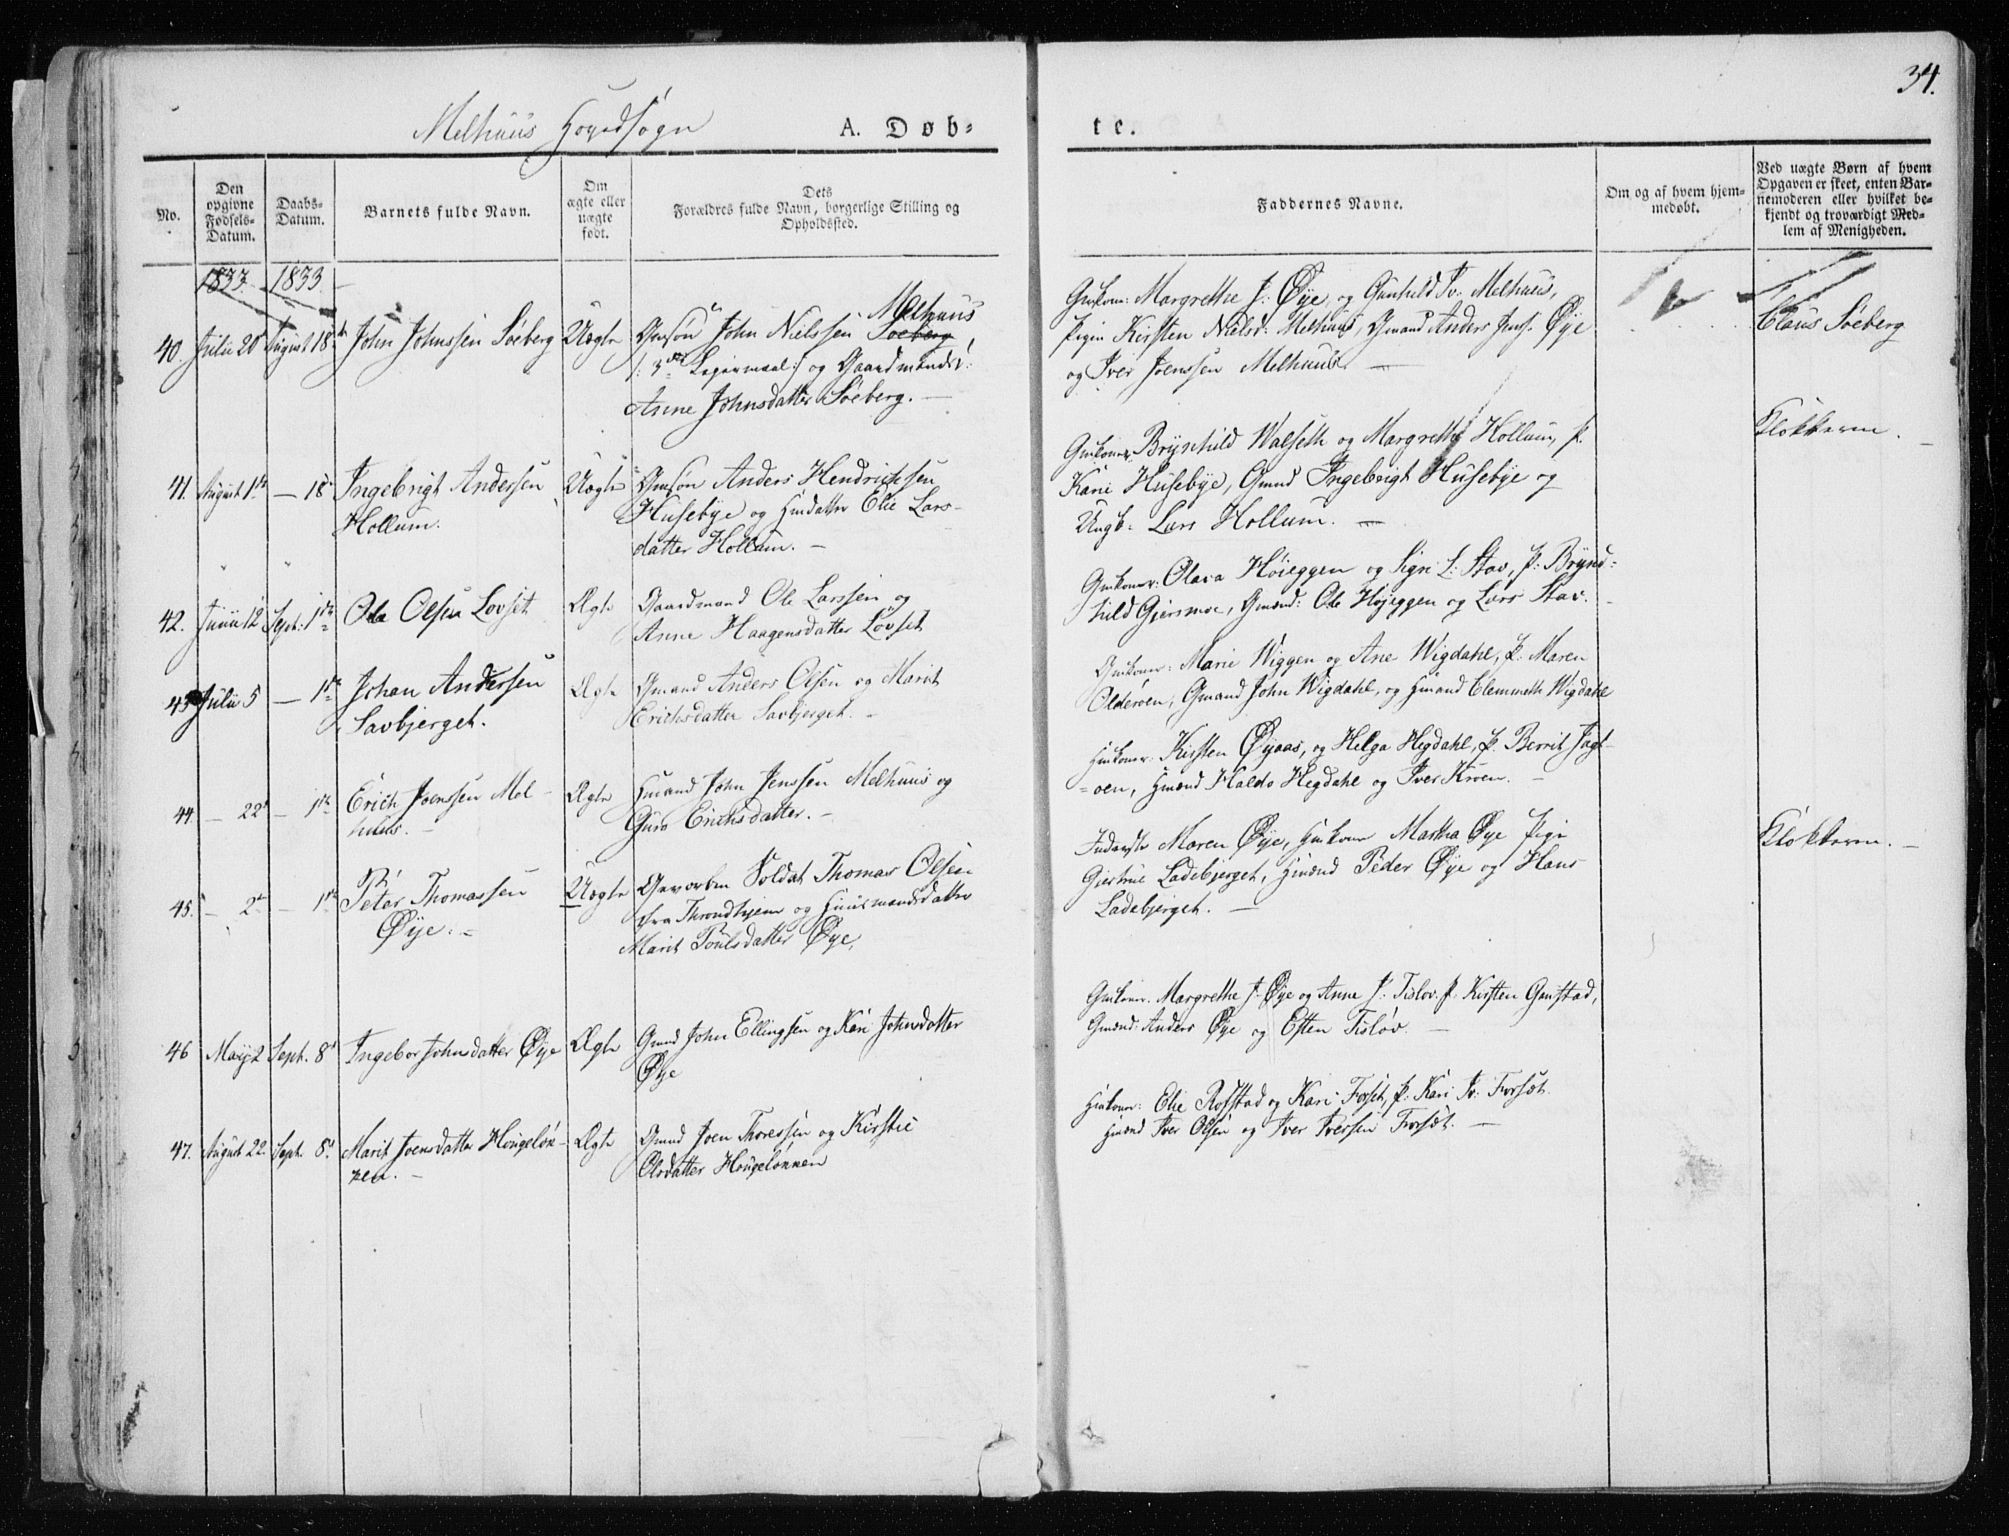 34.
Melhuus Hovedsogn
A. Døb-
te.
No.
Den
opgivne
Fødsels-
Datum.
Daabs-
Datum.
Barnets fulde Navn.
Om
ægte eller
uægte
født.
Dets
Forældres fulde Navn, borgerlige Stilling og
Opholdssted.
Faddernes Navne.
Om og af hvem hjem-
medøbt.
Ved uægte Børn af hvem
Opgaven er skeet, enten Bar-
nemoderen eller hvilket be-
kjendt og troværdigt Med-
lem af Menigheden.
1833. 1833.
40. Julii 20 August 18 John Johnssen Søeberg Uægte
Gmsøn John Nielssen Søeberg Melhuus
/: 3die Leiermaal :/ og Gaardmandsd:
Anne Johnsdatter Søeberg. —
Gmkoner: Margrethe J: Øye, og Gunhild Iv: Melhuus,
Pigen Kirsten Nielsd: Melhuus, Gmand Anders Jens. Øye
og Iver Joenssen Melhuus. —
Claus Søeberg
41. August 1ste — 18 Ingebrigt Andersen
Hollum.
Uægte
Gmsøn Anders Hendrichsen
Husebye og Hmdatter Elie Lars-
datter Hollum. —
Gmkoner Brynhild Walseth og Margrethe Hollum, P.
Kari Husebye, Gmnd Ingebrigt Husebye og
Ungk: Lars Hollum. —
Klokkeren. —
42. Junii 12 Sept: 1ste Ole Olsen Løvset Ægte
Gaardmand Ole Larssen og
Anne Haagensdatter Løvset
Gmkoner: Olava Høieggen og Sigri L: Stav, P: Brynd-
hild Giersmoe, Gmænd: Ole Højeggen og Lars Stav.
43 Julii 5 — 1ste Johan Andersen
Lavbjerget.
Ægte
Gmand Anders Olsen og Marit
Erichsdatter Lavbjerget. —
Gmkoner: Marie Wiggen og Ane Wigdahl, P: Maren
Olderøen, Gmand John Wigdahl, og Hmand Clemmeth Wigdahl
44. — 22 — 1ste Erich Joenssen Mel-
huus. —
Ægte
Hmand John Jenssen Melhuus og
Guro Erichsdatter. —
Hmkoner: Kirsten Øyaas, og Helga Hegdahl, P. Berrit Jagt-
øen, Hmænd Haldo Hegdahl og Iver Kroen. —
45. — 2 — 1ste Peter Thomassen
Øye. —
Uægte
Gevorben Soldat Thomas Olsen
fra Throndhjem og Huusmandsdatter
Marit Poulsdatter Øye.
Inderste Maren Øye, Hmkone Martha Øye Pige
Giertrue Ladebjerget, Hmænd Peder Øye og Hans
Ladebjerget. —
Klokkeren. —
46 Maij 2 Sept. 8 Ingebor Johnsdatter Øye Ægte
Gmnd John Ellingsen og Kari Johnsdatter
Øye
Gmkoner. Margrethe J. Øye og Anne J: Tisløv. P. Kirsten Gaustad,
Gmænd: Anders Øye og Esten Tisløv. —
47. August 22. Sept. 8 Marit Joensdatter Hougeløk-
ken. —
Ægte
Gmnd Joen Thoressen og Kirstie
Olsdatter Hougeløkken
Hmkoner: Elie Rofstad og Kari Forset, P. Kari Iv: Forsæt
Hmænd Iver Olsen og Iver Iverssen Forsæt. —